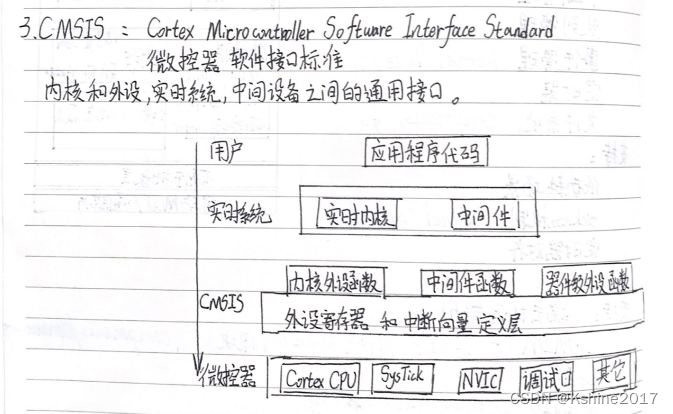 3.CMSIS : Cortex Microcontroller Software Interface Standard
微控器 软件接口标准
内核和外设,实时系统,中间设备之间的通用接口。
用户 应用程序代码
实时系统 实时内核 中间件
内核外设函数 中间件函数 器件级外设函数
CMSIS
外设寄存器 和 中断向量 定义层
微控器 Cortex CPU SysTick NVIC 调试口 其它
CSDN @Kshine2017